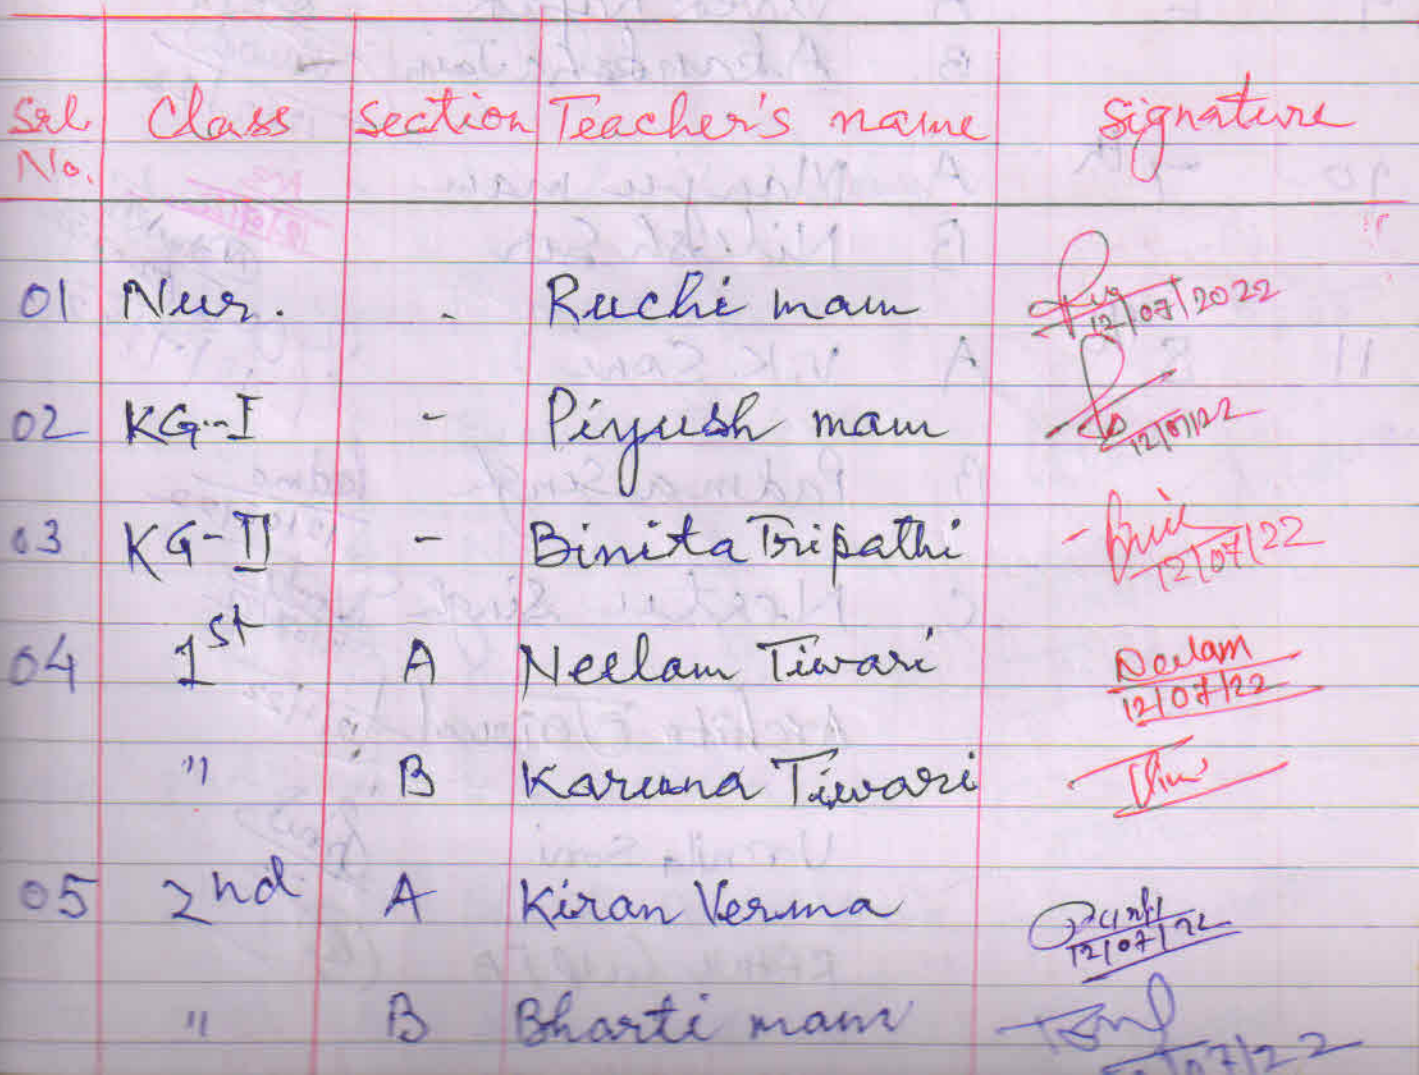 Srl. No. Class Section Teacher's name Signature
01 Nur. - Ruchi mam 12/07/2022
02 KG-I - Piyush mam 12/07/22
03 KG-II - Binita Tripathi 12/07/22
04 1st A Neelam Tiwari Neelam 12/07/22
" B Karuna Tiwari
05 2nd A Kiran Verma 12/07/22
" B Bharti mam